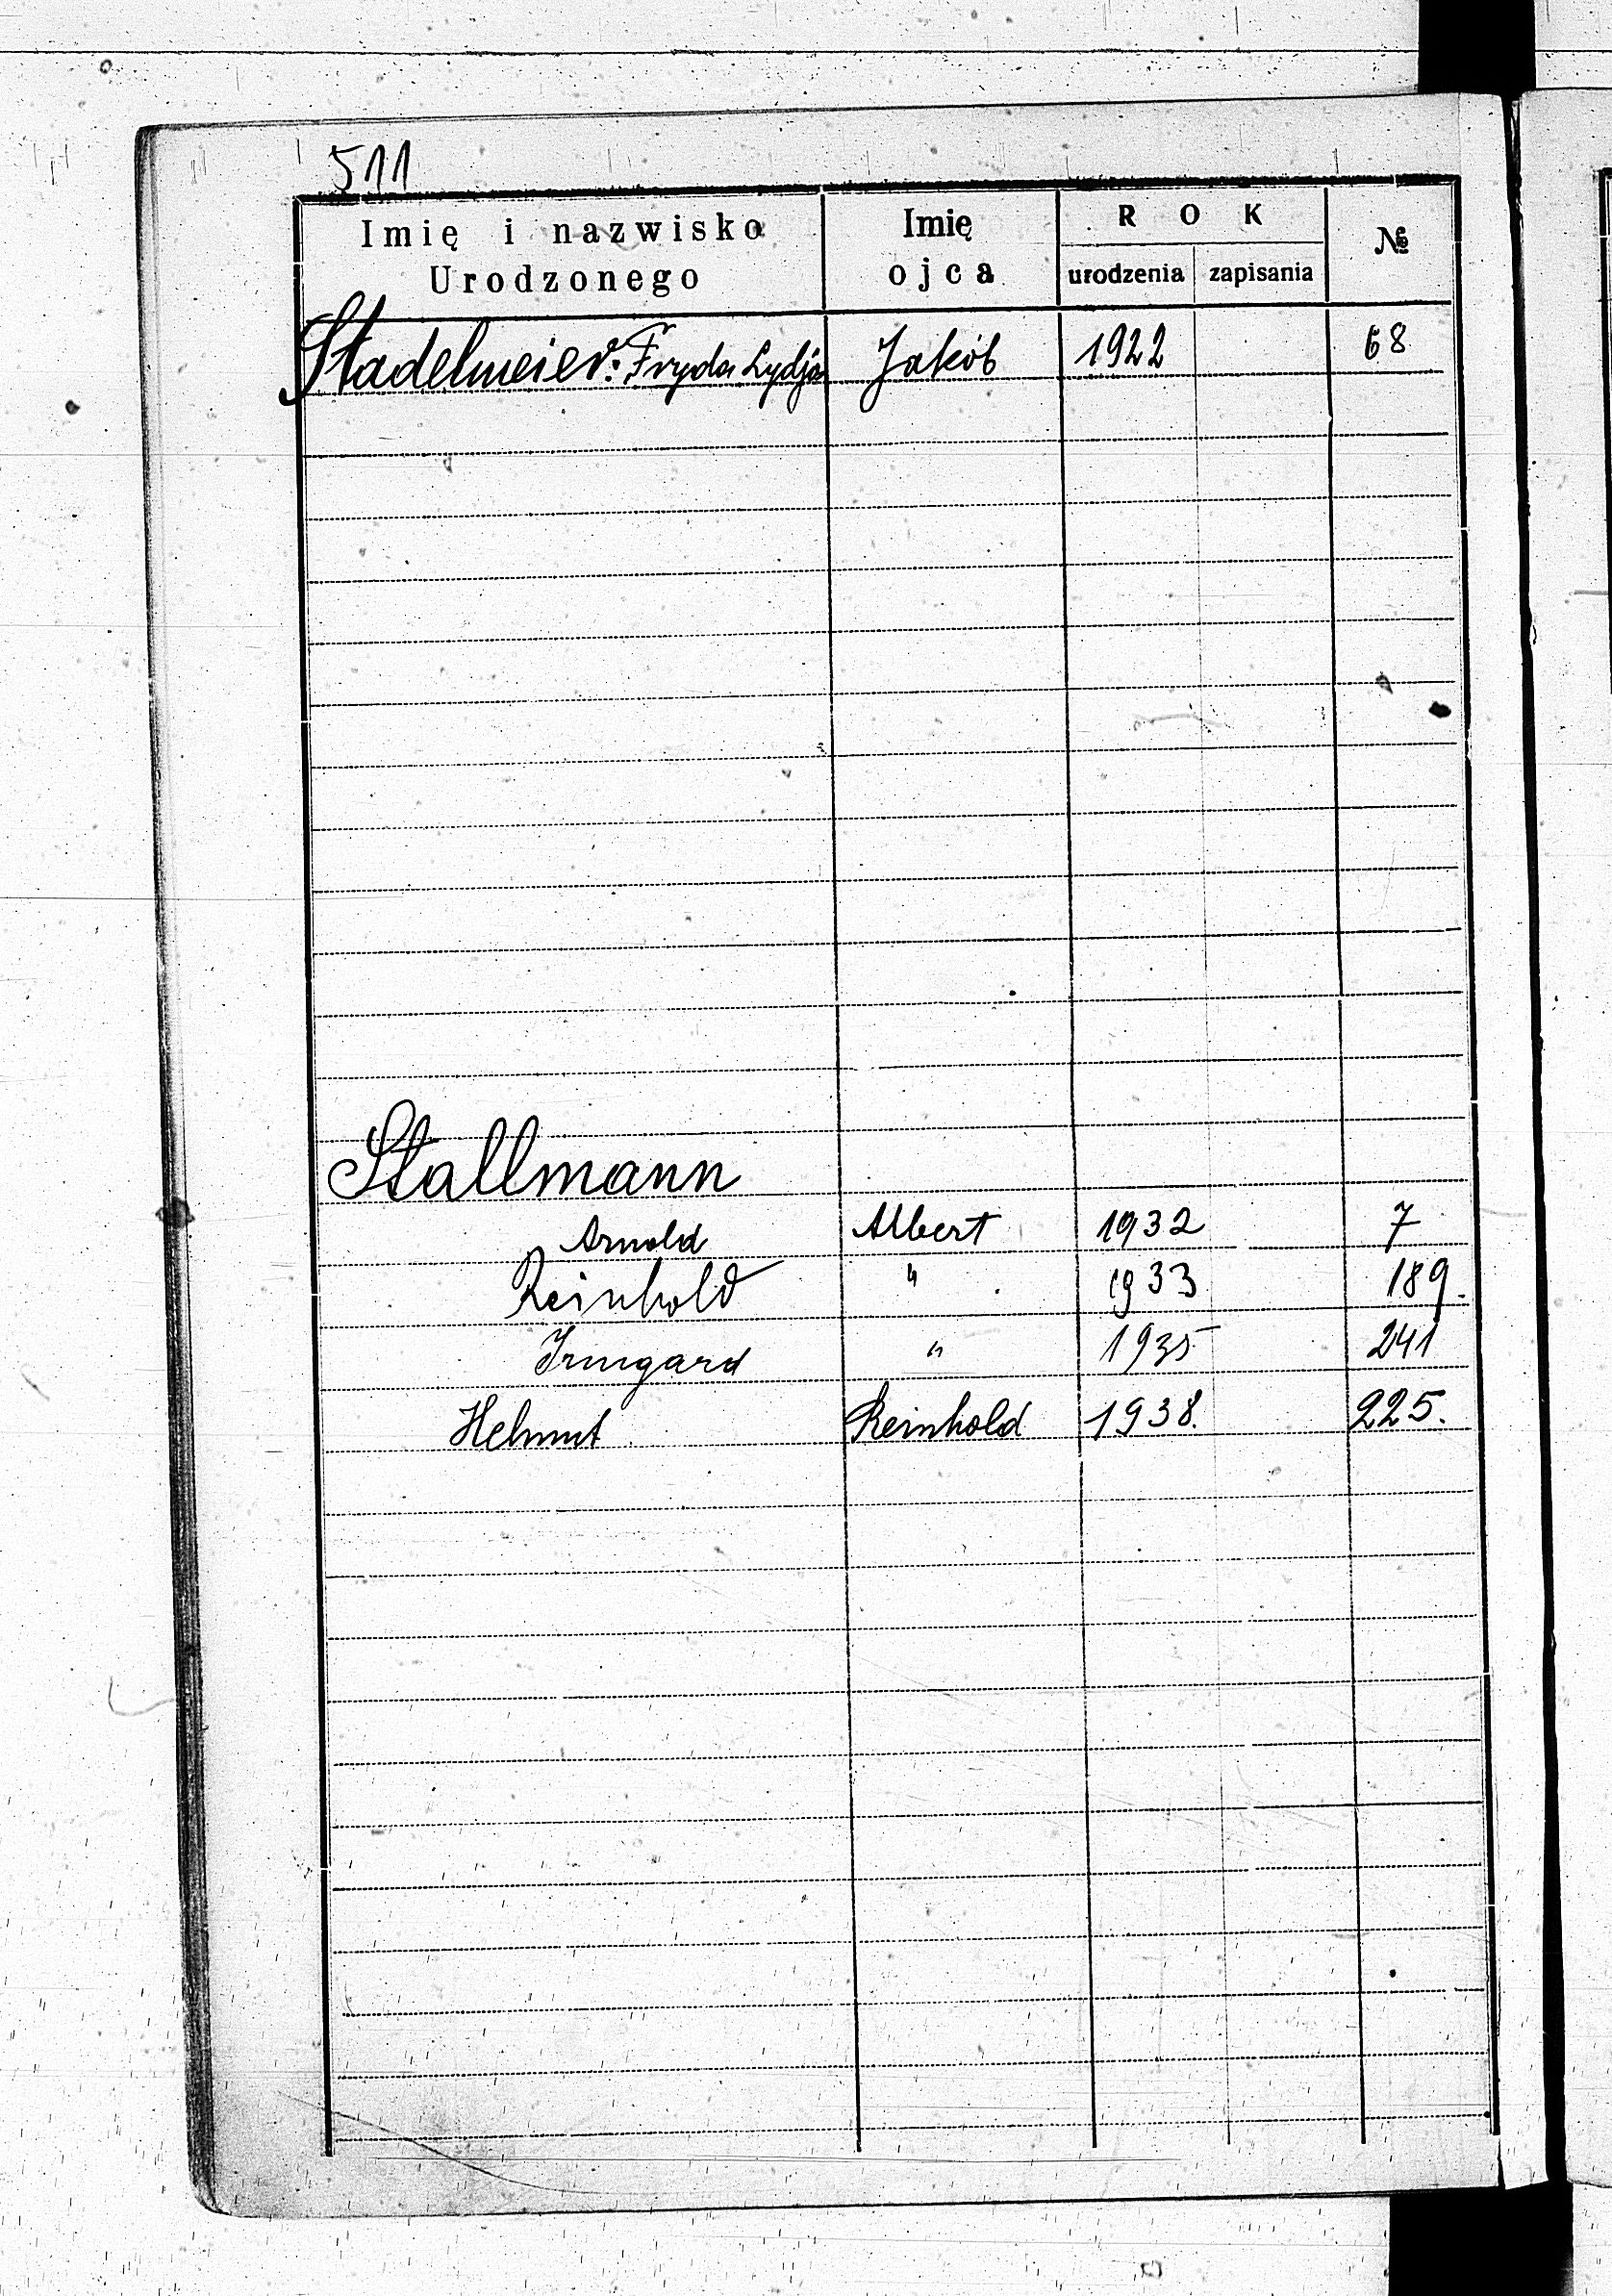 511
Imię i nazwisko Urodzonego Imię ojca ROK urodzenia zapisania №
Stadelmeier: Fryda Lydja Jakób 1922 68
Stallmann
Arnold Albert 1932 7
Reinhold " 1933 189.
Irmgard " 1935 241
Helmut Reinhold 1938. 225.